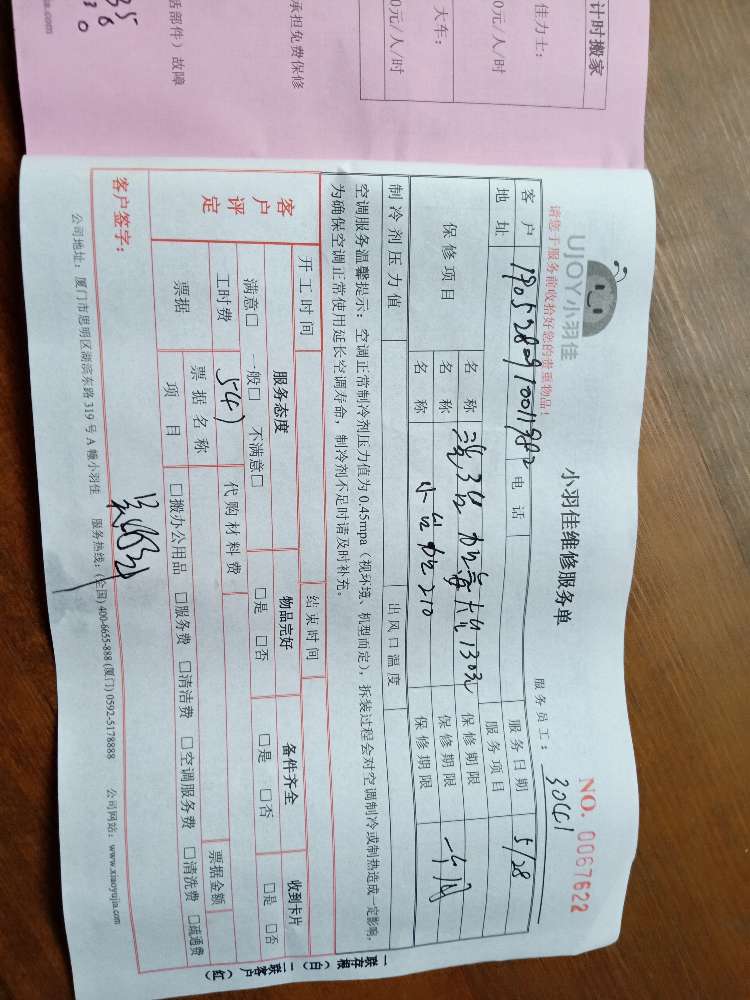 计时搬家
佳力士：
大车：
0元/人/时
0元/人/时
承担免费保修
话部件）故障
ia.com
UJOY小羽佳
小羽佳维修服务单
NO. 0067622
请您于服务前收拾好您的贵重物品！
服务员工：
客户
电话
服务日期
5/28
地址
服务项目
保修项目
名称
保修期限
名称
保修期限
一个月
名称
保修期限
制冷剂压力值
出风口温度
空调服务温馨提示：空调正常制冷剂压力值为0.45mpa（视环境、机型而定），拆装过程会对空调制冷或制热造成一定影响，
为确保空调正常使用延长空调寿命，制冷剂不足时请及时补充。
开工时间
结束时间
客户评定
服务态度
物品完好
备件齐全
收到卡片
满意□ 一般□ 不满意□
□是 □否
□是 □否
□是 □否
工时费
代购材料费
票据金额
票据
票据名称
项目
□搬办公用品 □服务费 □清洁费 □空调服务费 □清洗费 □疏通费
客户签字：
公司地址：厦门市思明区湖滨东路319号A幢小羽佳 服务热线：(全国) 400-6655-888 (厦门) 0592-5178888 公司网站：www.xiaoyujia.com
一联存根（白） 二联客户（红）